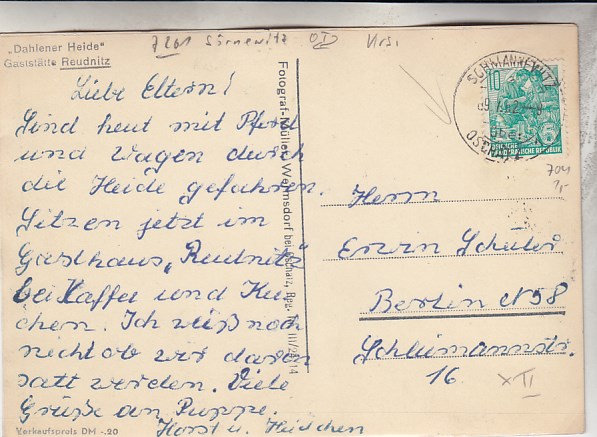 „Dahlener Heide"
Gaststätte Reudnitz
7261 Sörnewitz
Liebe Eltern!
Sind heut mit Pferd
und Wagen durch
die Heide gefahren.
Sitzen jetzt im
Gasthaus „Reudnitz"
bei Kaffee und Ku-
chen. Ich weiß noch
nicht ob wir davon
satt werden. Viele
Grüße an Puppe.
Horst u. Heidchen
Verkaufspreis DM -.20
Fotograf-Müller, Wermsdorf bei Oschatz, Bez.
über
OSCHATZ
10
DEUTSCHE
DEMOKRATISCHE REPUBLIK
Herrn
Erwin Schüler
Berlin N 58
Schliemannstr.
16
XII